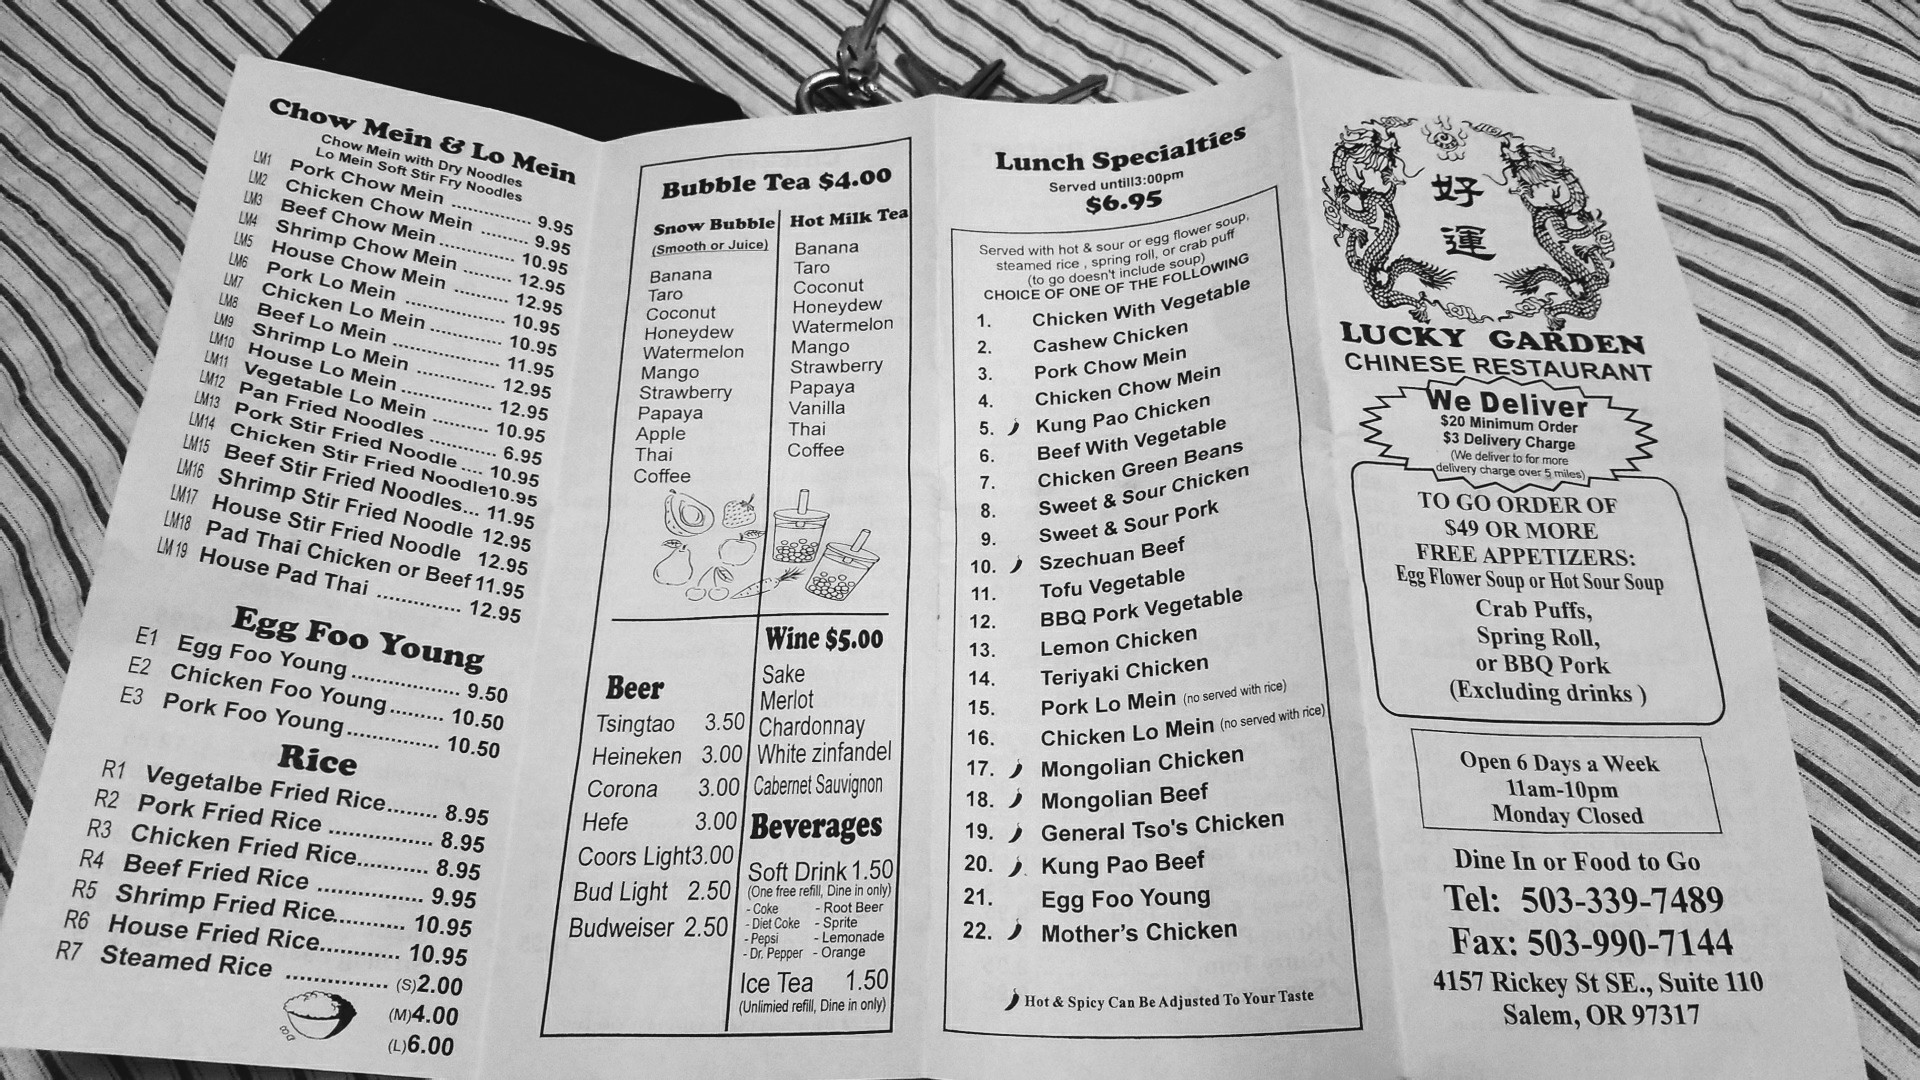 Chow Mein & Lo Mein
Chow Mein with Dry Noodles
Lo Mein Soft Stir Fry Noodles
LM1 Pork Chow Mein .............. 9.95
LM2 Chicken Chow Mein ........ 9.95
LM3 Beef Chow Mein............. 10.95
LM4 Shrimp Chow Mein ........ 12.95
LM5 House Chow Mein ......... 12.95
LM6 Pork Lo Mein ................. 10.95
LM7 Chicken Lo Mein............. 10.95
LM8 Beef Lo Mein .................. 11.95
LM9 Shrimp Lo Mein .............. 12.95
LM10 House Lo Mein................ 12.95
LM11 Vegetable Lo Mein ......... 10.95
LM12 Pan Fried Noodles ........... 6.95
LM13 Pork Stir Fried Noodle .... 10.95
LM14 Chicken Stir Fried Noodle10.95
LM15 Beef Stir Fried Noodles... 11.95
LM16 Shrimp Stir Fried Noodle 12.95
LM17 House Stir Fried Noodle 12.95
LM18 Pad Thai Chicken or Beef 11.95
LM 19 House Pad Thai ............. 12.95
Egg Foo Young
E1 Egg Foo Young................. 9.50
E2 Chicken Foo Young......... 10.50
E3 Pork Foo Young............... 10.50
Rice
R1 Vegetalbe Fried Rice........ 8.95
R2 Pork Fried Rice ................ 8.95
R3 Chicken Fried Rice........... 8.95
R4 Beef Fried Rice ................ 9.95
R5 Shrimp Fried Rice........... 10.95
R6 House Fried Rice............. 10.95
R7 Steamed Rice ................. (S)2.00
(M)4.00
(L)6.00
Bubble Tea $4.00
Snow Bubble
(Smooth or Juice)
Banana
Taro
Coconut
Honeydew
Watermelon
Mango
Strawberry
Papaya
Apple
Thai
Coffee
Hot Milk Tea
Banana
Taro
Coconut
Honeydew
Watermelon
Mango
Strawberry
Papaya
Vanilla
Thai
Coffee
Beer
Tsingtao 3.50
Heineken 3.00
Corona 3.00
Hefe 3.00
Coors Light3.00
Bud Light 2.50
Budweiser 2.50
Wine $5.00
Sake
Merlot
Chardonnay
White zinfandel
Cabernet Sauvignon
Beverages
Soft Drink 1.50
(One free refill, Dine in only)
- Coke - Root Beer
- Diet Coke - Sprite
- Pepsi - Lemonade
- Dr. Pepper - Orange
Ice Tea 1.50
(Unlimied refill, Dine in only)
Lunch Specialties
Served untill3:00pm
$6.95
Served with hot & sour or egg flower soup,
steamed rice , spring roll, or crab puff
(to go doesn't include soup)
CHOICE OF ONE OF THE FOLLOWING
1. Chicken With Vegetable
2. Cashew Chicken
3. Pork Chow Mein
4. Chicken Chow Mein
5. Kung Pao Chicken
6. Beef With Vegetable
7. Chicken Green Beans
8. Sweet & Sour Chicken
9. Sweet & Sour Pork
10. Szechuan Beef
11. Tofu Vegetable
12. BBQ Pork Vegetable
13. Lemon Chicken
14. Teriyaki Chicken
15. Pork Lo Mein (no served with rice)
16. Chicken Lo Mein (no served with rice)
17. Mongolian Chicken
18. Mongolian Beef
19. General Tso's Chicken
20. Kung Pao Beef
21. Egg Foo Young
22. Mother's Chicken
Hot & Spicy Can Be Adjusted To Your Taste
好
運
LUCKY GARDEN
CHINESE RESTAURANT
We Deliver
$20 Minimum Order
$3 Delivery Charge
(We deliver to for more
delivery charge over 5 miles)
TO GO ORDER OF
$49 OR MORE
FREE APPETIZERS:
Egg Flower Soup or Hot Sour Soup
Crab Puffs,
Spring Roll,
or BBQ Pork
(Excluding drinks )
Open 6 Days a Week
11am-10pm
Monday Closed
Dine In or Food to Go
Tel: 503-339-7489
Fax: 503-990-7144
4157 Rickey St SE., Suite 110
Salem, OR 97317